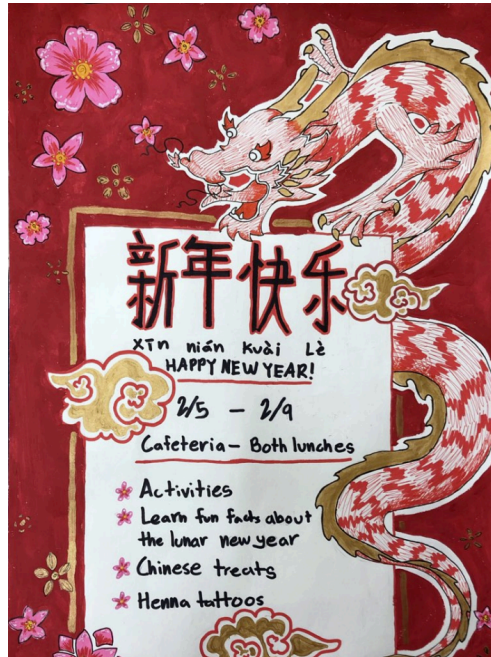 新年快乐
Xīn nián Kuài Lè
HAPPY NEW YEAR!
2/5 - 2/9
Cafeteria - Both lunches
Activities
Learn fun facts about
the lunar new year
Chinese treats
Henna tattoos